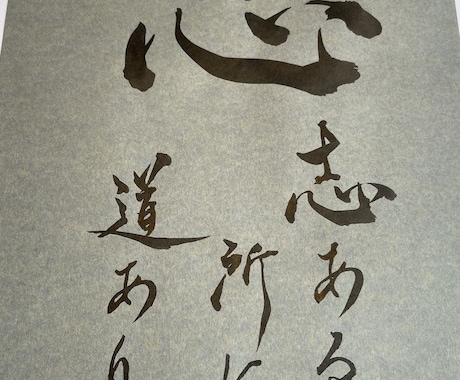 志ある
所に
道あり